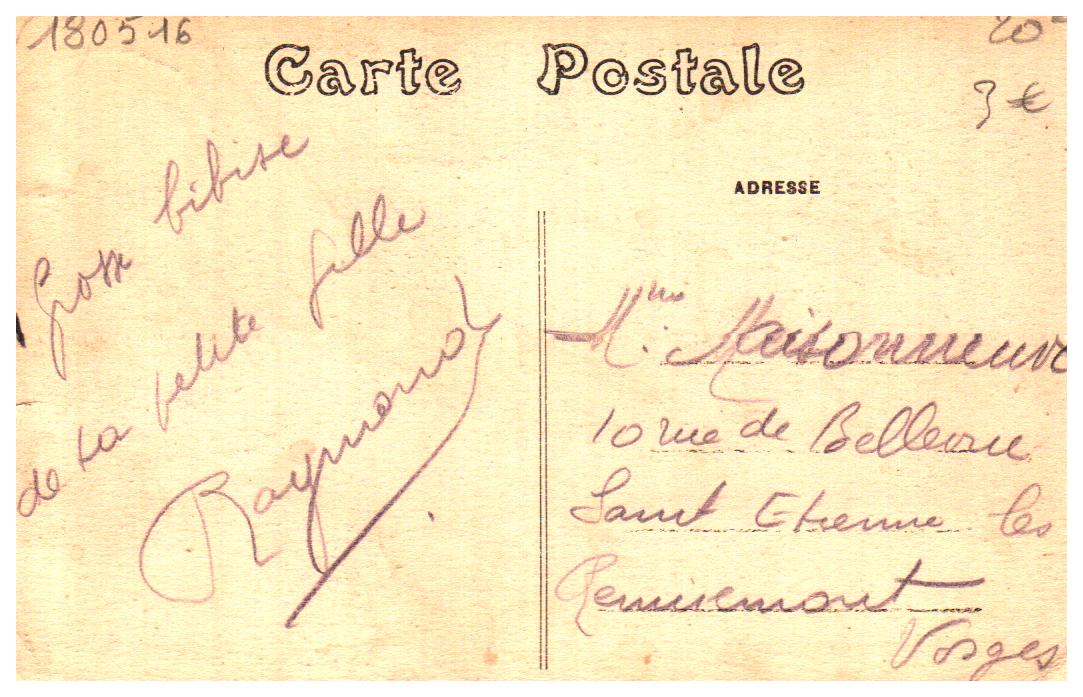 180516
20-
Carte Postale
3 €
ADRESSE
Grosse bibise
de ta petite fille
Raymond
Mme Maisonneuve
10 rue de Bellevue
Saint Etienne les
Remiremont
Vosges